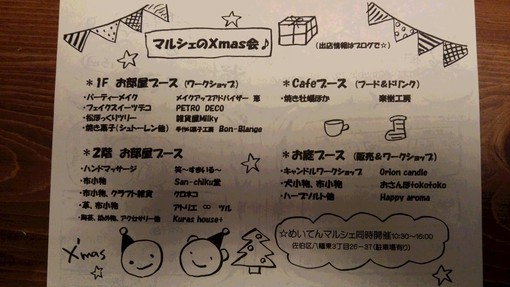 マルシェのXmas会♪
(出店情報はブログで☆)
＊1F お部屋ブース (ワークショップ)
・パーティーメイク メイクアップアドバイザー 恵
・フェイクスイーツデコ PETRO DECO
・松ぼっくりツリー 雑貨屋Milky
・焼き菓子(シュトーレン他) 手作り菓子工房 Bon-Blange
＊Cafeブース (フード&ドリンク)
・焼き牡蠣ほか 楽樹工房
＊2階 お部屋ブース
・ハンドマッサージ 笑～すまいる～
・布小物 San-chiku堂
・布小物、クラフト雑貨 クロネコ
・革、布小物 アトリエ ∞ ツル
・陶芸、染め物、アクセサリー他 Kuras house+
＊お庭ブース (販売&ワークショップ)
・キャンドルワークショップ Orion candle
・犬小物、布小物 おさんぽtokotoko
・ハーブソルト他 Happy aroma
X'mas
☆めいてんマルシェ同時開催 10:30～16:00
佐伯区八幡東3丁目26-37(駐車場有り)